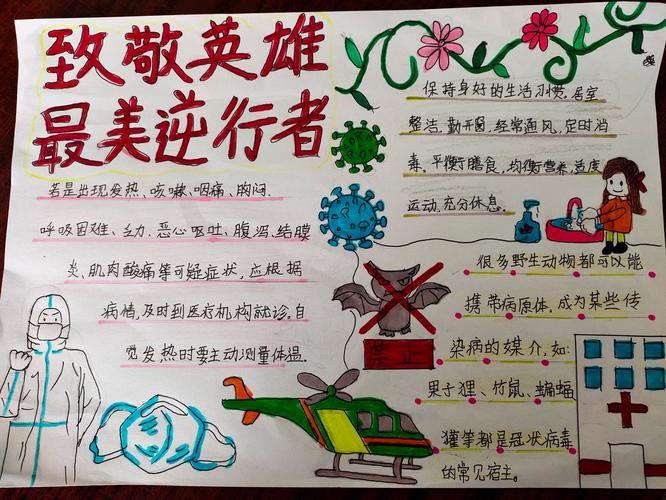 致敬英雄
最美逆行者
若是出现发热、咳嗽、咽痛、胸闷.
呼吸困难、乏力.恶心呕吐、腹泻、结膜
炎、肌肉酸痛等可疑症状,应根据
病情,及时到医疗机构就诊,自
觉发热时要主动测量体温.
保持身好的生活习惯.居室
整洁.勤开窗,经常通风,定时消
毒.平衡膳食,均衡营养,适度
运动,充分休息.
很多野生动物都可以能
携带病原体,成为某些传
染病的媒介,如:
果子狸、竹鼠、蝙蝠
獾等都是冠状病毒
的常见宿主.
禁止